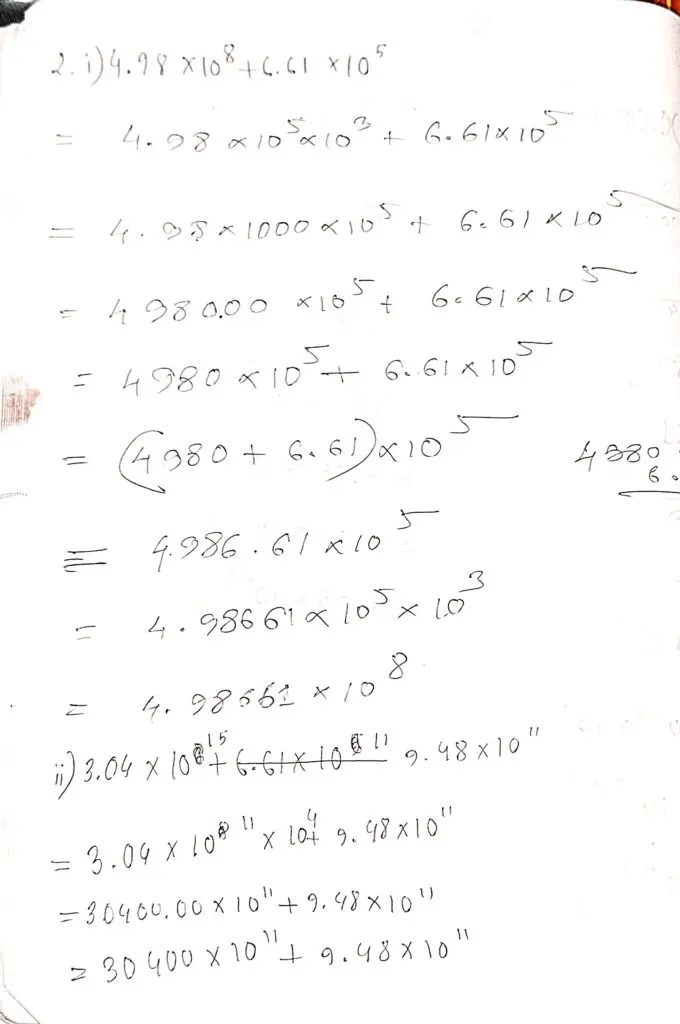 2. i) 4.98 × 10⁸ + 6.61 × 10⁵
= 4.98 × 10⁵ × 10³ + 6.61 × 10⁵
= 4.98 × 1000 × 10⁵ + 6.61 × 10⁵
= 4980.00 × 10⁵ + 6.61 × 10⁵
= 4980 × 10⁵ + 6.61 × 10⁵
= (4980 + 6.61) × 10⁵
4980
6.
= 4986.61 × 10⁵
= 4.98661 × 10⁵ × 10³
= 4.98661 × 10⁸
ii) 3.04 × 10¹⁵ + 9.48 × 10¹¹
= 3.04 × 10¹¹ × 10⁴ + 9.48 × 10¹¹
= 30400.00 × 10¹¹ + 9.48 × 10¹¹
= 30400 × 10¹¹ + 9.48 × 10¹¹